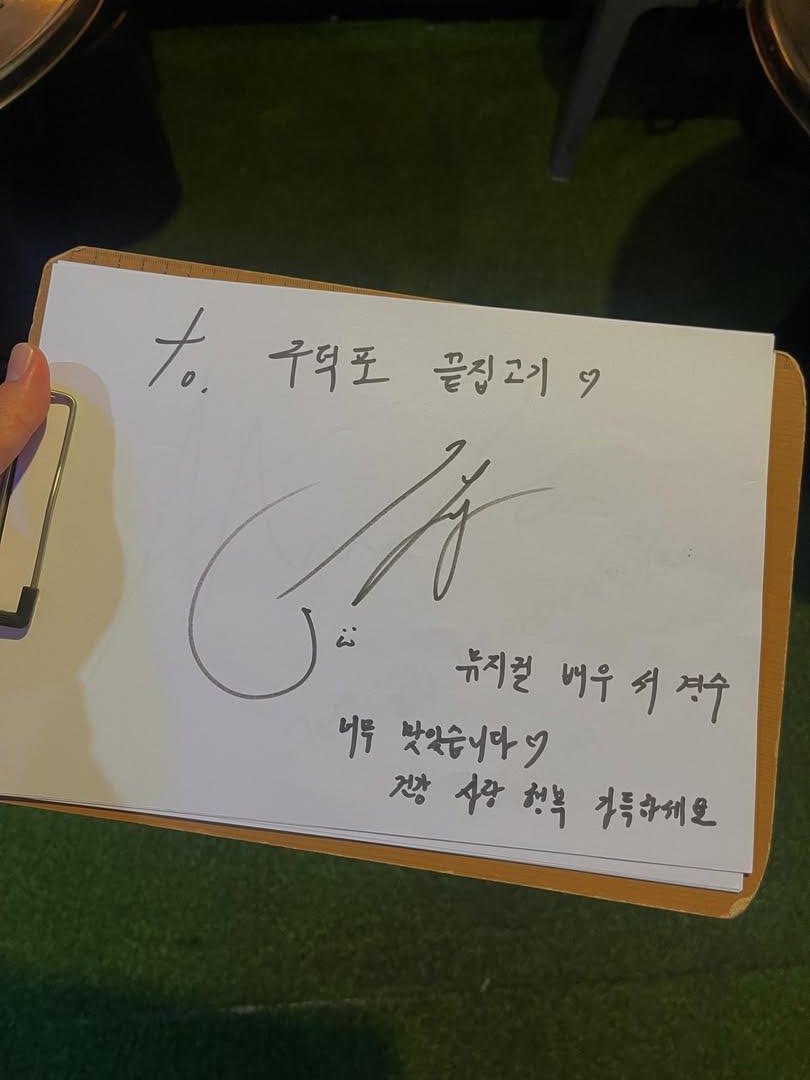 to. 구덕포 끝집고기 ♡
뮤지컬 배우 서경수
너무 맛있습니다 ♡
건강 사랑 행복 가득하세요